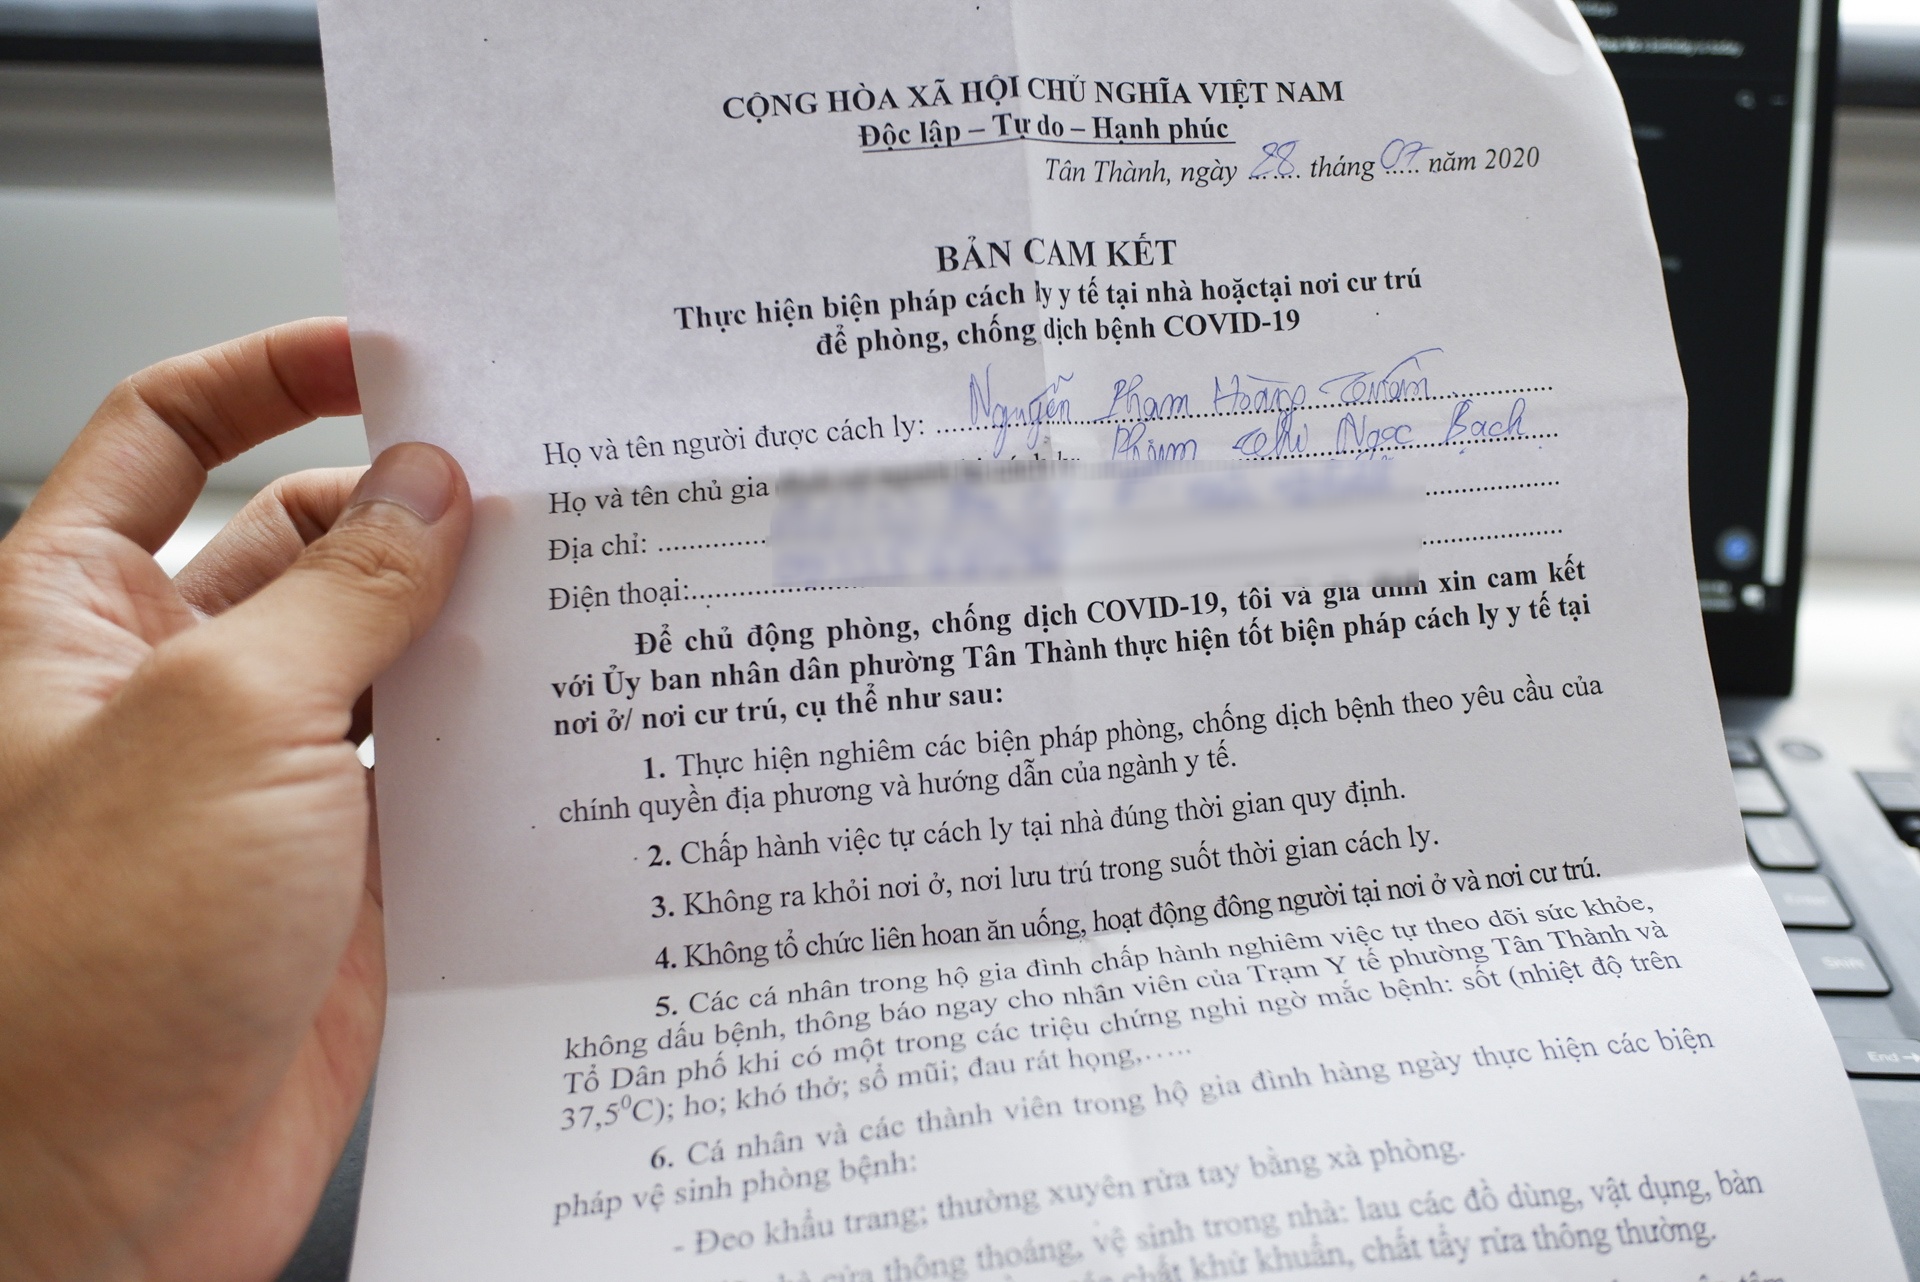 CỘNG HÒA XÃ HỘI CHỦ NGHĨA VIỆT NAM
Độc lập – Tự do – Hạnh phúc
Tân Thành, ngày 28 tháng 07 năm 2020
BẢN CAM KẾT
Thực hiện biện pháp cách ly y tế tại nhà hoặctại nơi cư trú
để phòng, chống dịch bệnh COVID-19
Họ và tên người được cách ly: Nguyễn Phạm Hoàng
Họ và tên chủ gia Phạm Thị Ngọc Bạch
Địa chỉ:
Điện thoại:
Để chủ động phòng, chống dịch COVID-19, tôi và gia đình xin cam kết
với Ủy ban nhân dân phường Tân Thành thực hiện tốt biện pháp cách ly y tế tại
nơi ở/ nơi cư trú, cụ thể như sau:
1. Thực hiện nghiêm các biện pháp phòng, chống dịch bệnh theo yêu cầu của
chính quyền địa phương và hướng dẫn của ngành y tế.
2. Chấp hành việc tự cách ly tại nhà đúng thời gian quy định.
3. Không ra khỏi nơi ở, nơi lưu trú trong suốt thời gian cách ly.
4. Không tổ chức liên hoan ăn uống, hoạt động đông người tại nơi ở và nơi cư trú.
5. Các cá nhân trong hộ gia đình chấp hành nghiêm việc tự theo dõi sức khỏe,
không dấu bệnh, thông báo ngay cho nhân viên của Trạm Y tế phường Tân Thành và
Tổ Dân phố khi có một trong các triệu chứng nghi ngờ mắc bệnh: sốt (nhiệt độ trên
37,5⁰C); ho; khó thở; sổ mũi; đau rát họng,…..
6. Cá nhân và các thành viên trong hộ gia đình hàng ngày thực hiện các biện
pháp vệ sinh phòng bệnh:
- Đeo khẩu trang; thường xuyên rửa tay bằng xà phòng.
cửa thông thoáng, vệ sinh trong nhà: lau các đồ dùng, vật dụng, bàn
chất khử khuẩn, chất tẩy rửa thông thường.
Enter
Shift
End